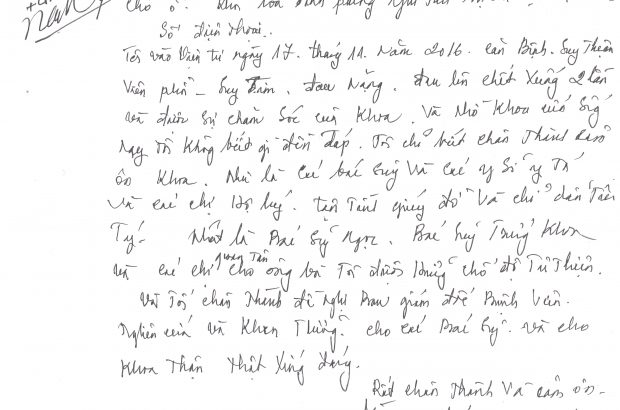 Số điện thoại..
Tôi vào Viện từ ngày 17. tháng 11. năm 2016. căn Bệnh. Suy Thận
Viêm phổi - Suy Tim. đau Nặng. đau lên chết Xuống 2 lần
và được Sự chăm Sóc của Khoa. Và Nhờ Khoa cứu Sống
Nay tôi không biết gì đền đáp. Tôi chỉ biết chân Thành cảm
ơn Khoa. Như là các bác Sỹ Và các y Sĩ y Tá
Và các chị Hộ lý. tận Tình giúp đỡ Và chỉ dẫn Tận
Tý. Nhất là Bác Sỹ Ngọc. Bác Sỹ Trưởng Khoa
và các chị quan Tâm cho ông bà Tôi được hưởng chế độ Từ Thiện.
Vậy Tôi chân Thành đề Nghị Ban giám đốc Bệnh Viện.
Nghiên cứu và Khen Thưởng cho các Bác Sỹ. và cho
Khoa Thận Thật Xứng đáng.
Rất chân Thành Và cảm ơn-